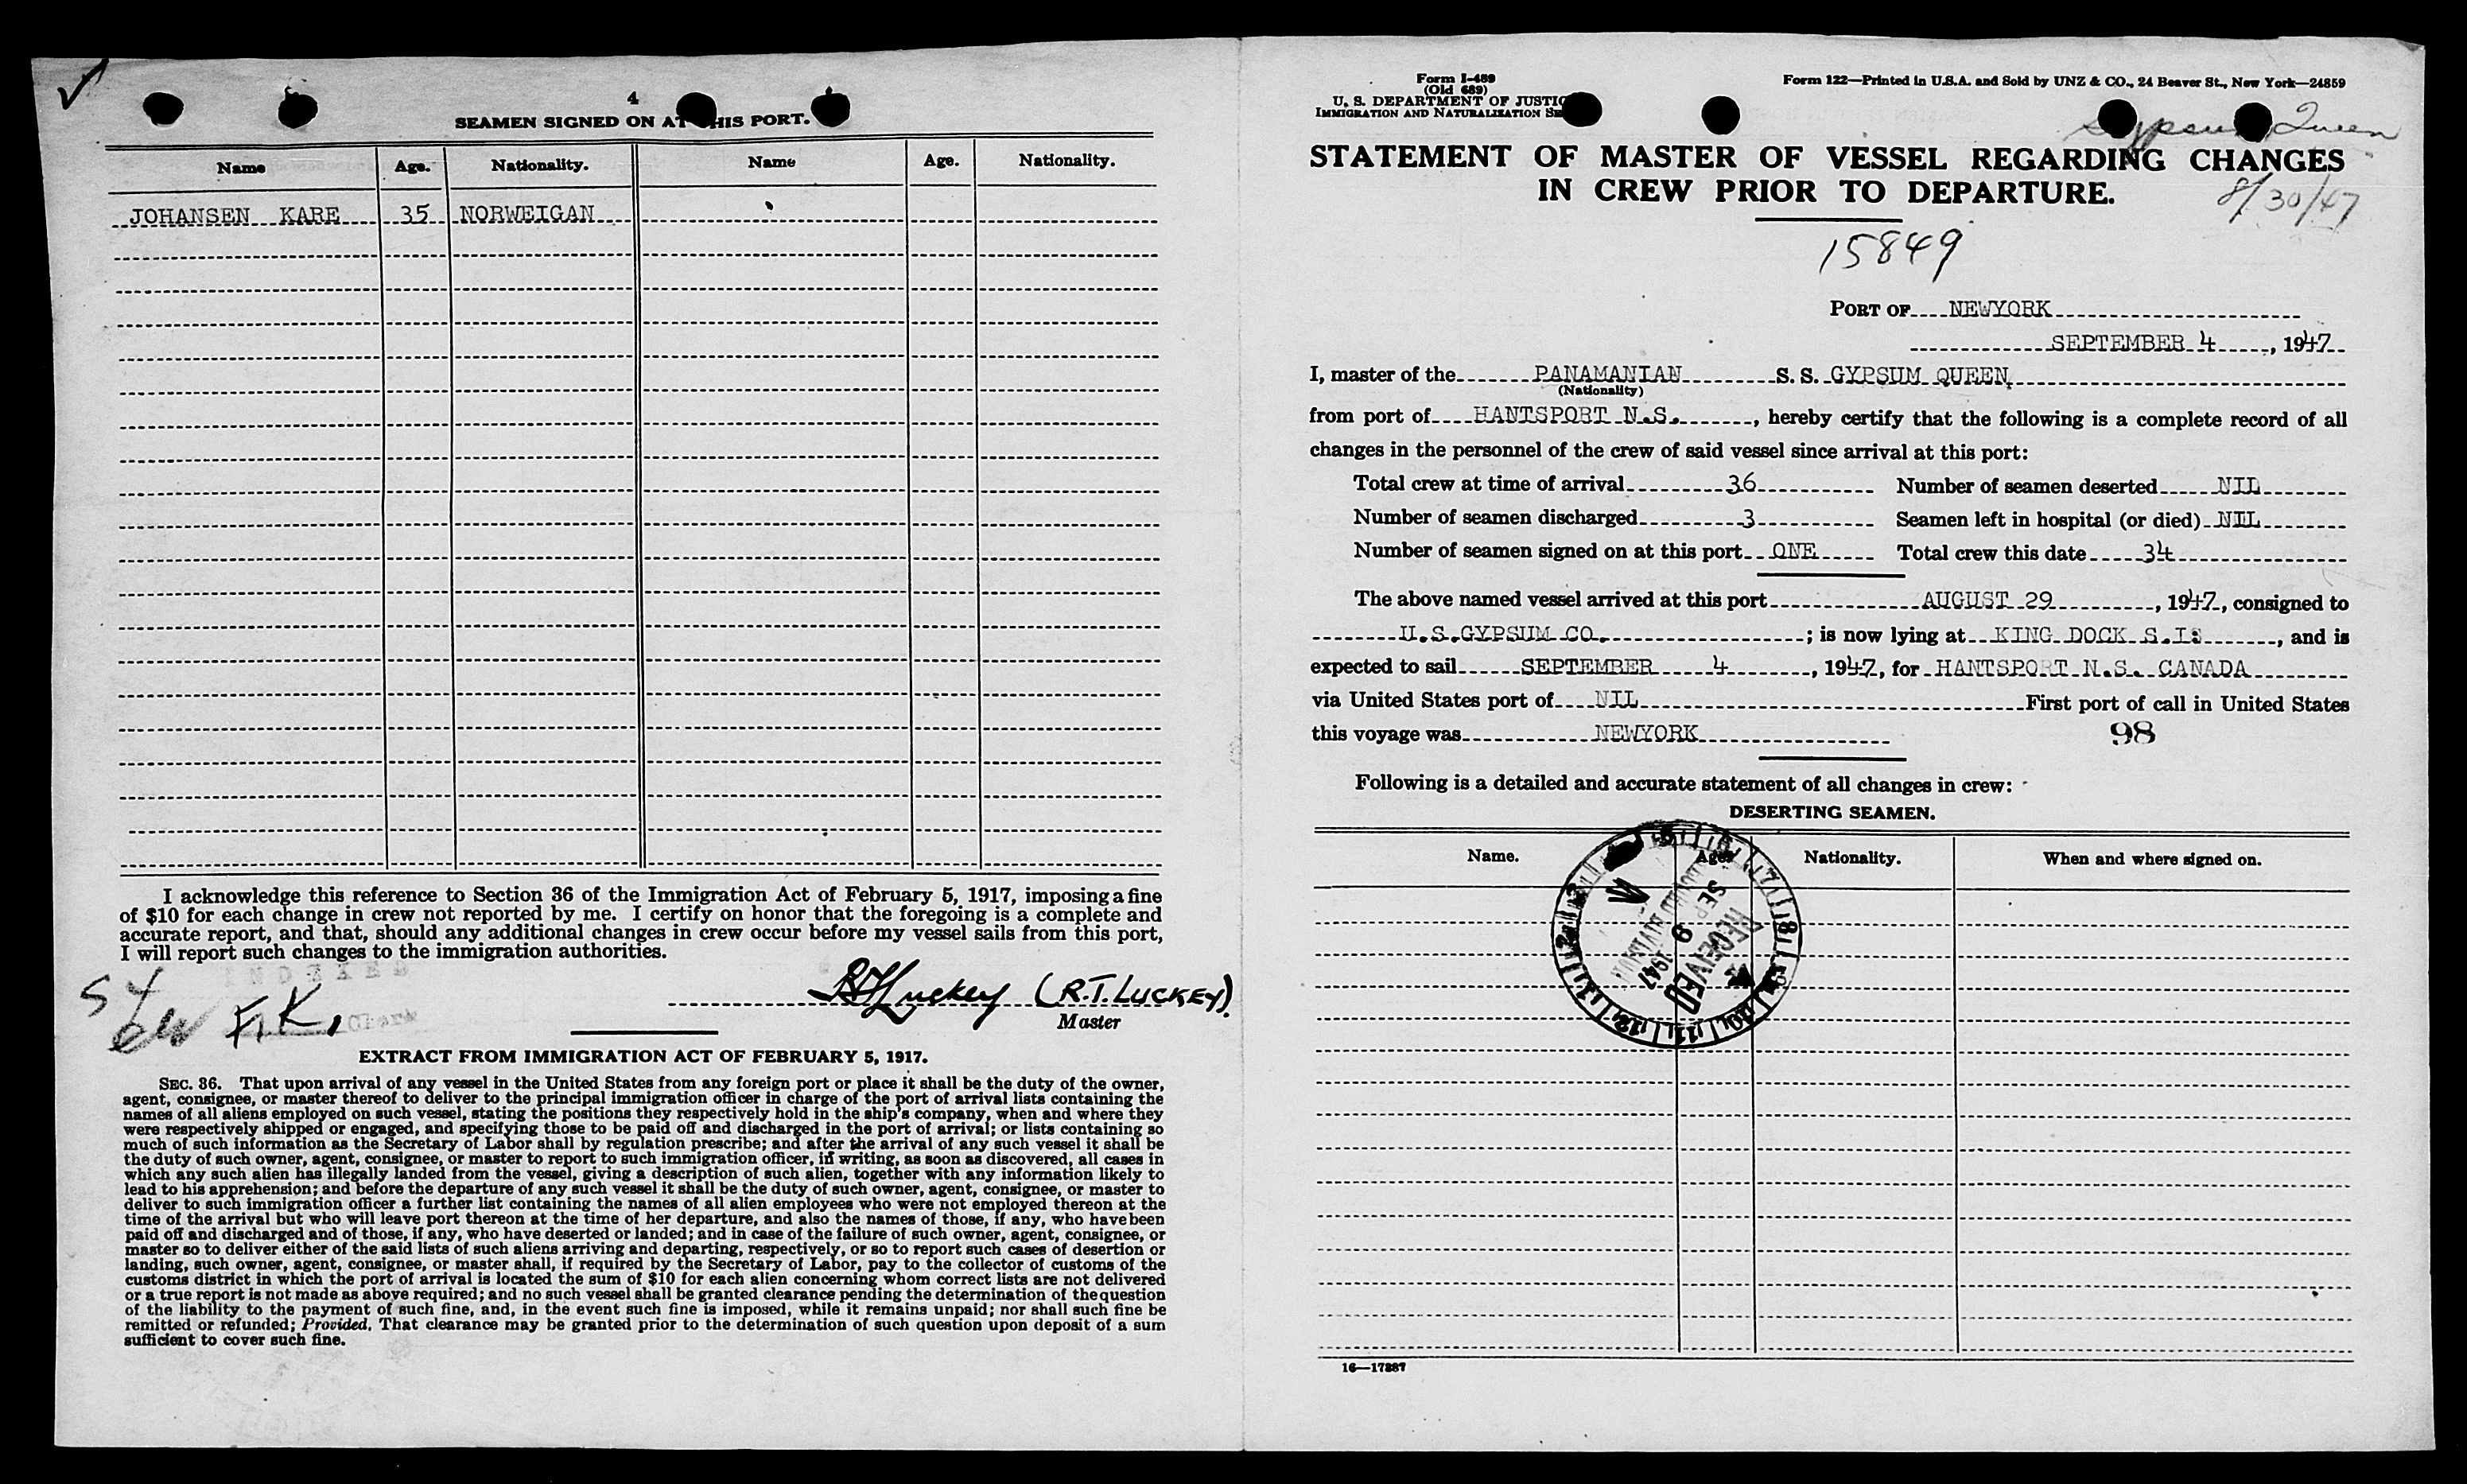 4
SEAMEN SIGNED ON AT THIS PORT.
Name Age. Nationality. Name Age. Nationality.
JOHANSEN KARE 35 NORWEIGAN
I acknowledge this reference to Section 36 of the Immigration Act of February 5, 1917, imposing a fine
of $10 for each change in crew not reported by me. I certify on honor that the foregoing is a complete and
accurate report, and that, should any additional changes in crew occur before my vessel sails from this port,
I will report such changes to the immigration authorities.
R.T. Luckey (R.T. LUCKEY)
Master
F.K.
EXTRACT FROM IMMIGRATION ACT OF FEBRUARY 5, 1917.
SEC. 36. That upon arrival of any vessel in the United States from any foreign port or place it shall be the duty of the owner,
agent, consignee, or master thereof to deliver to the principal immigration officer in charge of the port of arrival lists containing the
names of all aliens employed on such vessel, stating the positions they respectively hold in the ship's company, when and where they
were respectively shipped or engaged, and specifying those to be paid off and discharged in the port of arrival; or lists containing so
much of such information as the Secretary of Labor shall by regulation prescribe; and after the arrival of any such vessel it shall be
the duty of such owner, agent, consignee, or master to report to such immigration officer, in writing, as soon as discovered, all cases in
which any such alien has illegally landed from the vessel, giving a description of such alien, together with any information likely to
lead to his apprehension; and before the departure of any such vessel it shall be the duty of such owner, agent, consignee, or master to
deliver to such immigration officer a further list containing the names of all alien employees who were not employed thereon at the
time of the arrival but who will leave port thereon at the time of her departure, and also the names of those, if any, who have been
paid off and discharged and of those, if any, who have deserted or landed; and in case of the failure of such owner, agent, consignee, or
master so to deliver either of the said lists of such aliens arriving and departing, respectively, or so to report such cases of desertion or
landing, such owner, agent, consignee, or master shall, if required by the Secretary of Labor, pay to the collector of customs of the
customs district in which the port of arrival is located the sum of $10 for each alien concerning whom correct lists are not delivered
or a true report is not made as above required; and no such vessel shall be granted clearance pending the determination of the question
of the liability to the payment of such fine, and, in the event such fine is imposed, while it remains unpaid; nor shall such fine be
remitted or refunded; Provided, That clearance may be granted prior to the determination of such question upon deposit of a sum
sufficient to cover such fine.
Form I-489
(Old 689)
U. S. DEPARTMENT OF JUSTIC
IMMIGRATION AND NATURALIZATION SE
Form 122—Printed in U.S.A. and Sold by UNZ & CO., 24 Beaver St., New York—24859
Gypsum Queen
STATEMENT OF MASTER OF VESSEL REGARDING CHANGES
IN CREW PRIOR TO DEPARTURE.
8/30/47
15849
PORT OF NEWYORK
SEPTEMBER 4, 1947
I, master of the PANAMANIAN S. S. GYPSUM QUEEN
(Nationality)
from port of HANTSPORT N.S., hereby certify that the following is a complete record of all
changes in the personnel of the crew of said vessel since arrival at this port:
Total crew at time of arrival 36 Number of seamen deserted NIL
Number of seamen discharged 3 Seamen left in hospital (or died) NIL
Number of seamen signed on at this port ONE Total crew this date 34
The above named vessel arrived at this port AUGUST 29, 1947, consigned to
U.S.GYPSUM CO.; is now lying at KING DOCK S.IS, and is
expected to sail SEPTEMBER 4, 1947, for HANTSPORT N.S. CANADA
via United States port of NIL First port of call in United States
this voyage was NEWYORK
98
Following is a detailed and accurate statement of all changes in crew:
DESERTING SEAMEN.
Name. Age. Nationality. When and where signed on.
RECEIVED
SEP 9 1947
16—17887